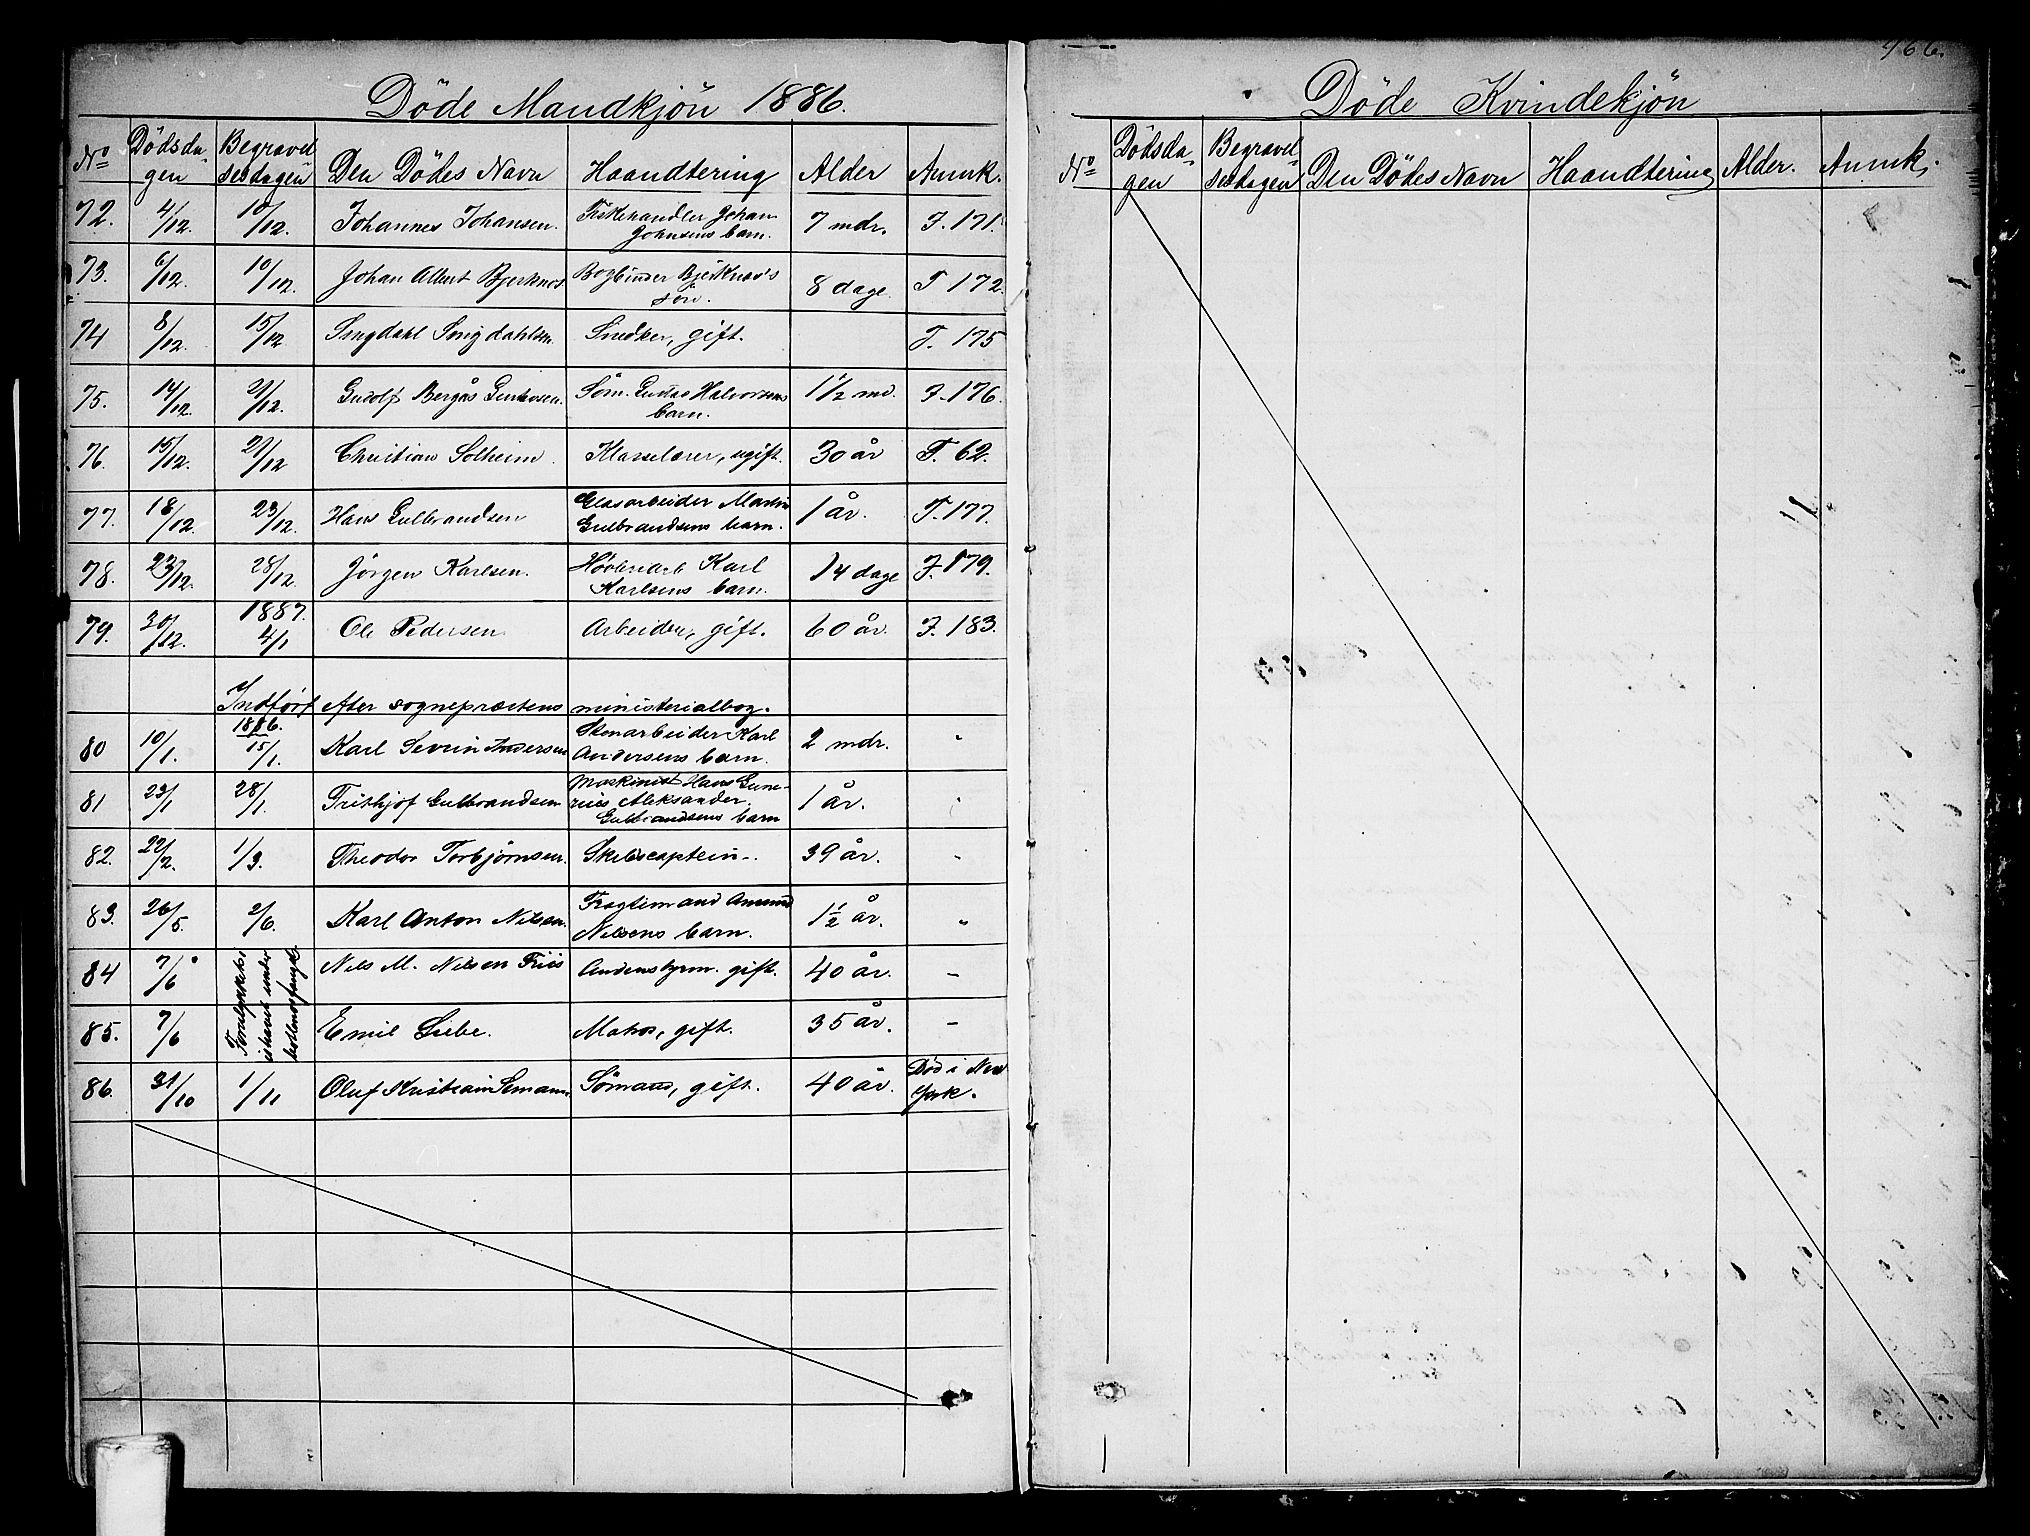 Döde Mandkjön 1886.
No Dödsda- Begravel- Den Dödes Navn Haandtering Alder Anmk.
gen sesdagen
72. 4/12. 10/12. Johannes Johansen. Fiskehandler Johan 7 mdr. F. 171.
Johnsens barn.
73. 6/12. 10/12. Johan Albert Bjerknes Bogbinder Bjerknes's 8 dage F 172.
sön.
74 8/12. 15/12 Smedker, gift. F. 175
75. 14/12. 21/12. Bergås Söm. Gustav Halvorsens 1 1/2 md. F. 176.
barn.
76. 15/12. 21/12 Christian Solheim Klasselærer, ugift. 30 år F. 62.
77. 18/12. 23/12. Hans Gulbrandsen Glasarbeider Martin 1 år. F. 177.
Gulbrandsens barn.
78. 23/12. 28/12. Jörgen Karlsen. Karl 14 dage F. 179.
Karlsens barn.
79. 30/12. 1887. 4/1 Ole Pedersen Arbeider, gift. 60 år. F. 183.
Indført efter sogneprestens ministerialbog.
1886.
80 10/1. 15/1. Karl Sevrin Andersen Stenarbeider Karl 2 mdr. "
Andersens barn.
81 23/1 28/1. Frithjof Gulbrandsen Maskinist Hans Gune- 1 år. "
rius Aleksander
Gulbrandsens barn
82. 22/2. 1/3. Theodor Torbjørnsen. Skibscaptein. 39 år. "
83. 26/5. 2/6. Karl Anton Nilsen. Fragtemand Amund 1 1/2 år. "
Nilsens barn.
84 7/6 Forulykket i Nils M. Nilsen Friis Andenstyrm. gift. 40 år. –
ishavet under
85. 7/6 bottlenosfangst. Emil Liebe. Matros, gift. 35 år. –
86. 31/10 1/11 Oluf Kristian Semann Sömand, gift. 40 år. Död i New
York.
466.
Döde Kvindekjön
No Dödsda- Begravel- Den Dödes Navn Haandtering Alder. Anmk.
gen sesdagen